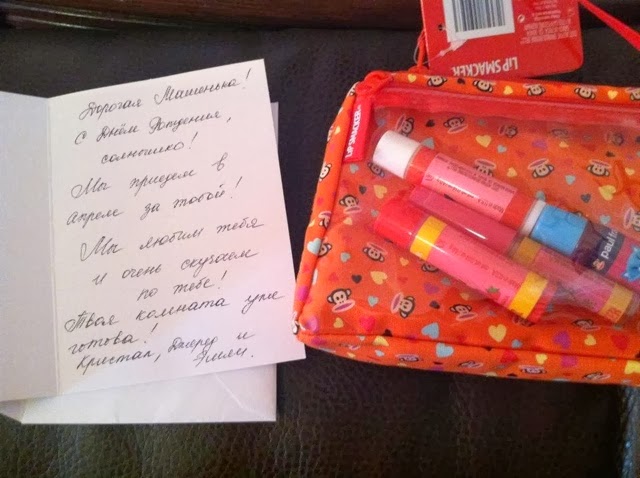 Дорогая Машенька!
С Днём Рождения,
солнышко!
Мы приедем в
апреле за тобой!
Мы любим тебя
и очень скучаем
по тебе!
Твоя комната уже
готова!
Кристал, Джеред и
LIP SMACKER
LIP SMACKER
paul